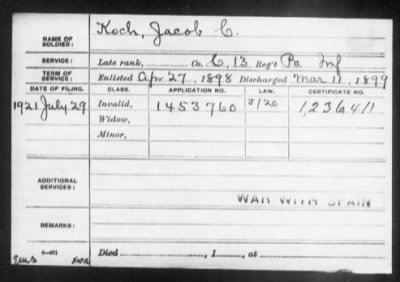 NAME OF SOLDIER: Koch, Jacob C.
SERVICE: Late rank, Co. C, 13 Reg't Pa Inf
TERM OF SERVICE: Enlisted Apr 27, 1898 Discharged Mar 11, 1899
DATE OF FILING. CLASS. APPLICATION NO. LAW. CERTIFICATE NO.
1921 July 29 Invalid, 1453760 J/20 1,236411
Widow,
Minor,
ADDITIONAL SERVICES:
WAR WITH SPAIN
REMARKS:
Died , 1 , at